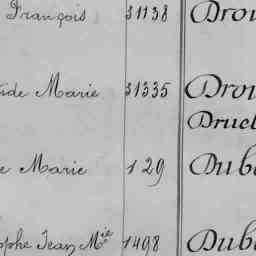 François 31138 Drou
ide Marie 31335 Drou
Druel
e Marie 129 Dub
ophe Jean Mie 1498 Dub